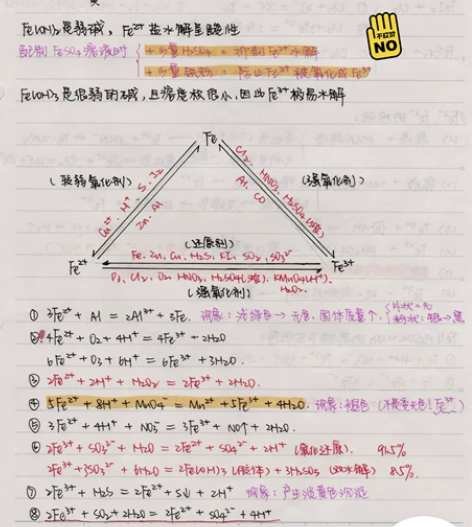 Fe(OH)₂是弱碱，Fe²⁺盐水解呈酸性
配制FeSO₄溶液时 +少量H₂SO₄ = 抑制Fe²⁺水解
+少量铁粉：防止Fe²⁺被氧化成Fe³⁺
不好惹
NO
Fe(OH)₃是很弱的碱，且溶度积很小，因此Fe³⁺极易水解
Fe
(较弱氧化剂)
Cu²⁺、H⁺、S、I₂
Zn、Al
Cl₂、HNO₃、H₂SO₄(浓)
Al、CO
(强氧化剂)
(还原剂)
Fe、Zn、Cu、H₂S、KI、SO₂、SO₃²⁻
Fe²⁺
Fe³⁺
Cl₂、O₂、HNO₃、H₂SO₄(浓)、KMnO₄(H⁺)、
H₂O₂、
(强氧化剂)
① 3Fe²⁺ + Al = 2Al³⁺ + 3Fe. 现象：浅绿色→无色，固体质量↑
② 4Fe²⁺ + O₂ + 4H⁺ = 4Fe³⁺ + 2H₂O
6Fe²⁺ + O₃ + 6H⁺ = 6Fe³⁺ + 3H₂O.
③ 2Fe²⁺ + 2H⁺ + H₂O₂ = 2Fe³⁺ + 2H₂O.
④ 5Fe²⁺ + 8H⁺ + MnO₄⁻ = Mn²⁺ + 5Fe³⁺ + 4H₂O. 现象：褪色 (不能变无色！Fe³⁺)
⑤ 3Fe²⁺ + 4H⁺ + NO₃⁻ = 3Fe³⁺ + NO↑ + 2H₂O.
⑥ 2Fe³⁺ + SO₃²⁻ + H₂O = 2Fe²⁺ + SO₄²⁻ + 2H⁺ (氧化还原). 91.5%
2Fe³⁺ + 3SO₃²⁻ + 6H₂O = 2Fe(OH)₃(胶体) + 3H₂SO₃ (双水解) 8.5%.
⑦ 2Fe³⁺ + H₂S = 2Fe²⁺ + S↓ + 2H⁺ 现象：产生淡黄色沉淀
⑧ 2Fe³⁺ + SO₂ + 2H₂O = 2Fe²⁺ + SO₄²⁻ + 4H⁺